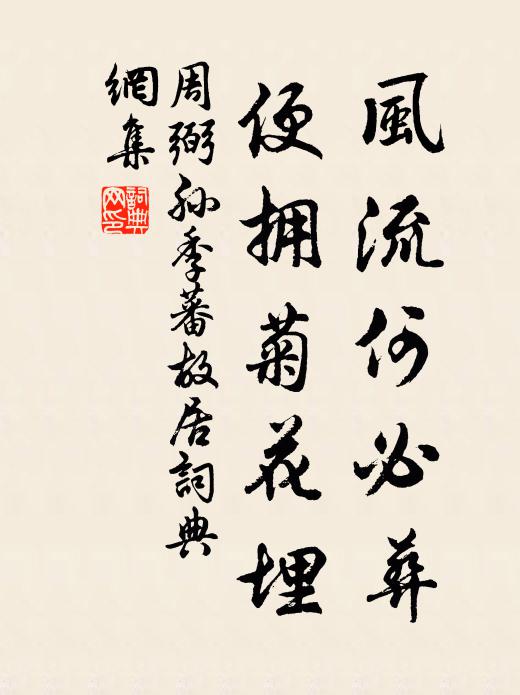 風流何必葬
便拥菊花埋
周弼孙季蕃故居詞典
網集
詞典
网印